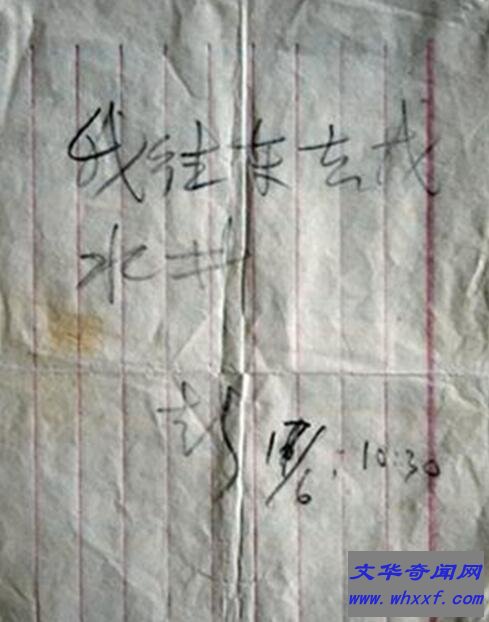 我往东去找
水井
彭 17/6: 10:30
文华奇闻网
www.whxxf.com